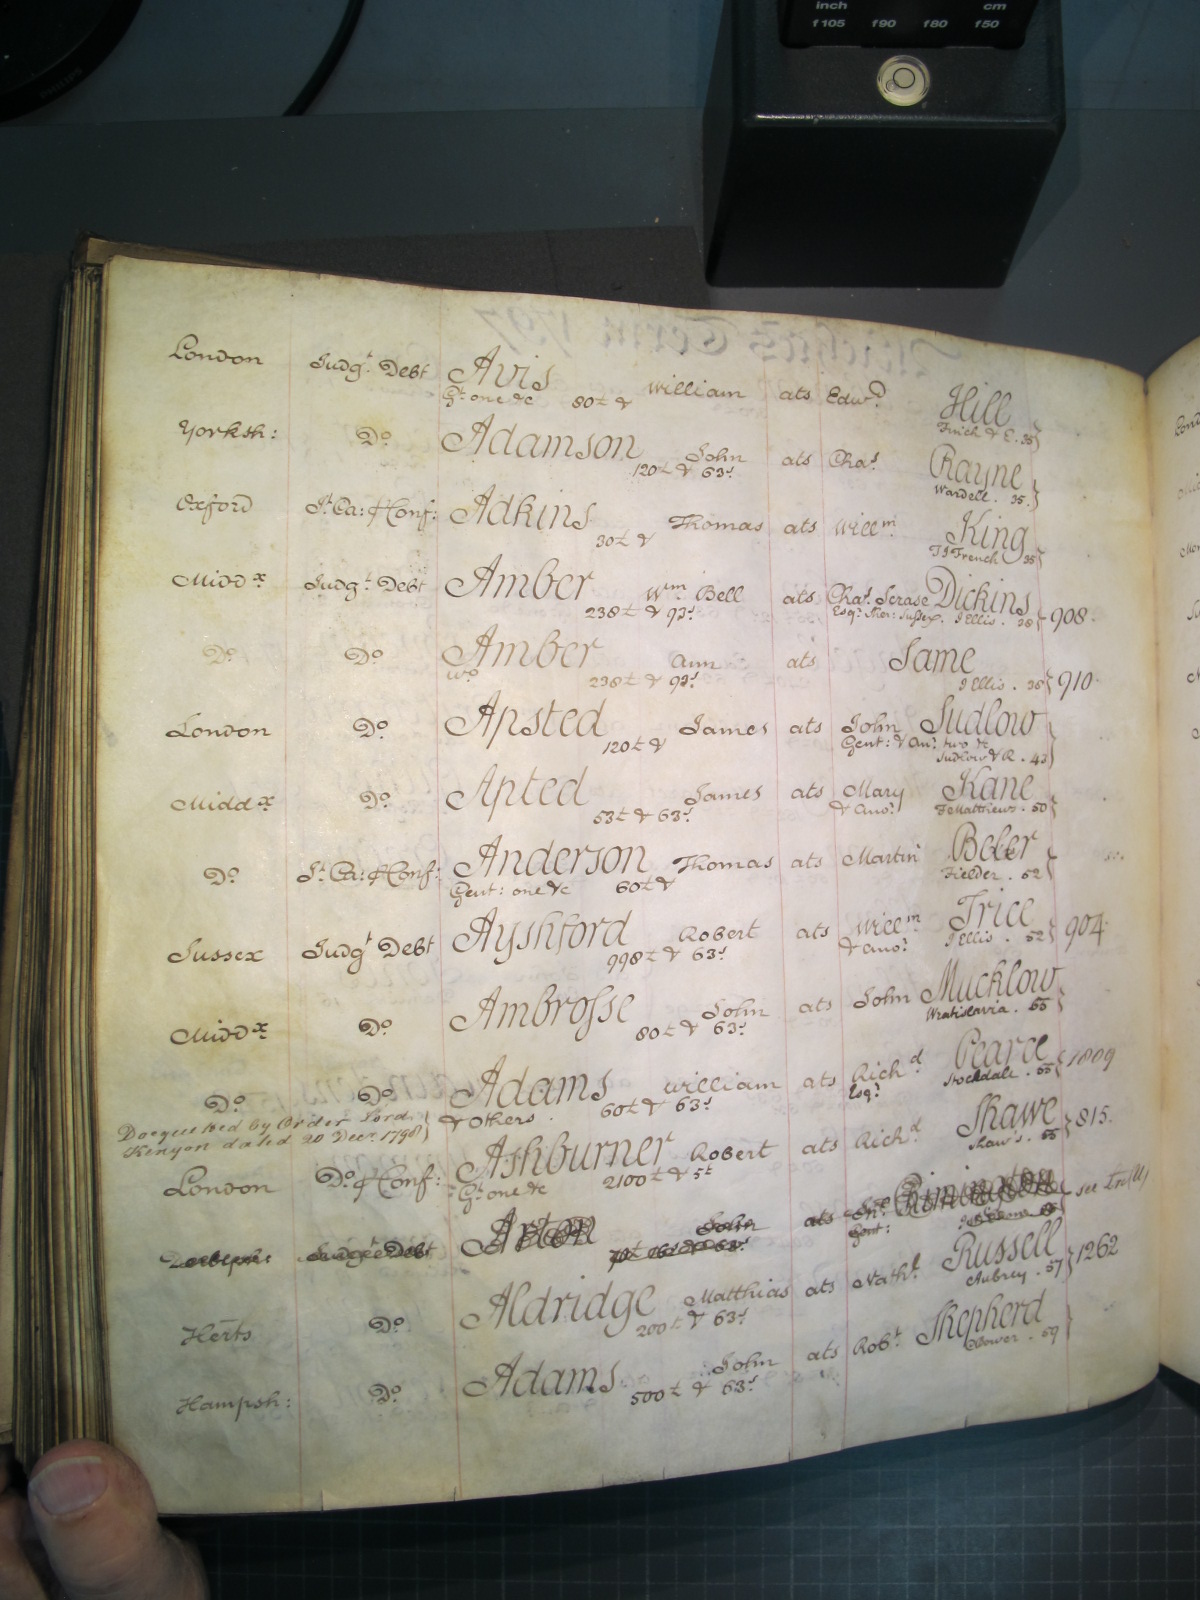 inch cm
f105 f90 f80 f50
PHILIPS
London Judg.t Debt Avis William ats Edw.d Hill
G.t one &c 80£ & Finch & C. 35
Yorksh: D.o Adamson John ats Cha.s Rayne
120£ & 63.s Wardell. 35.
Oxford J.t Ca: & Conf: Adkins Thomas ats Will.m King
30£ & French 35
Midd.x Judg.t Debt Amber W.m Bell ats Cha.s Scrase Dickins 908
238£ & 93.s Esq.r Sussex. J Ellis. 38
D.o D.o Amber Ann ats Same 910
w.o 238£ & 93.s J Ellis. 38
London D.o Apsted James ats John Ludlow
120£ & Gent: & an.r two &c
Ludlow & R. 43
Midd.x D.o Apted James ats Mary Kane
53£ & 63.s & ano.r Matthews. 50
D.o J.t Ca: & Conf: Anderson Thomas ats Martin Beler
Gent: one &c 60£ & Fielder. 52
Sussex Judg.t Debt Ayshford Robert ats Will.m Trice 904
998£ & 63.s & ano.r J Ellis. 52
Midd.x D.o Ambrosse John ats John Mucklow
80£ & 63.s Wratislavia. 55
D.o D.o Adams William ats Rich.d Pearce 1809
& Others. 60£ & 63.s Esq.r Stockdale. 55
Docquetted by Order Lord
Kenyon dated 20 Dec.r 1798
London D.o & Conf: Ashburner Robert ats Rich.d Shawe 815.
G.t one &c 2100£ & 5£ Shaw's. 55
Judge Debt John ats Rimington see
Gent:
Herts D.o Aldridge Matthias ats Nath.l Russell 1262
200£ & 63.s Aubrey. 57
Hampsh: D.o Adams John ats Rob.t Shepherd
500£ & 63.s Bower. 59